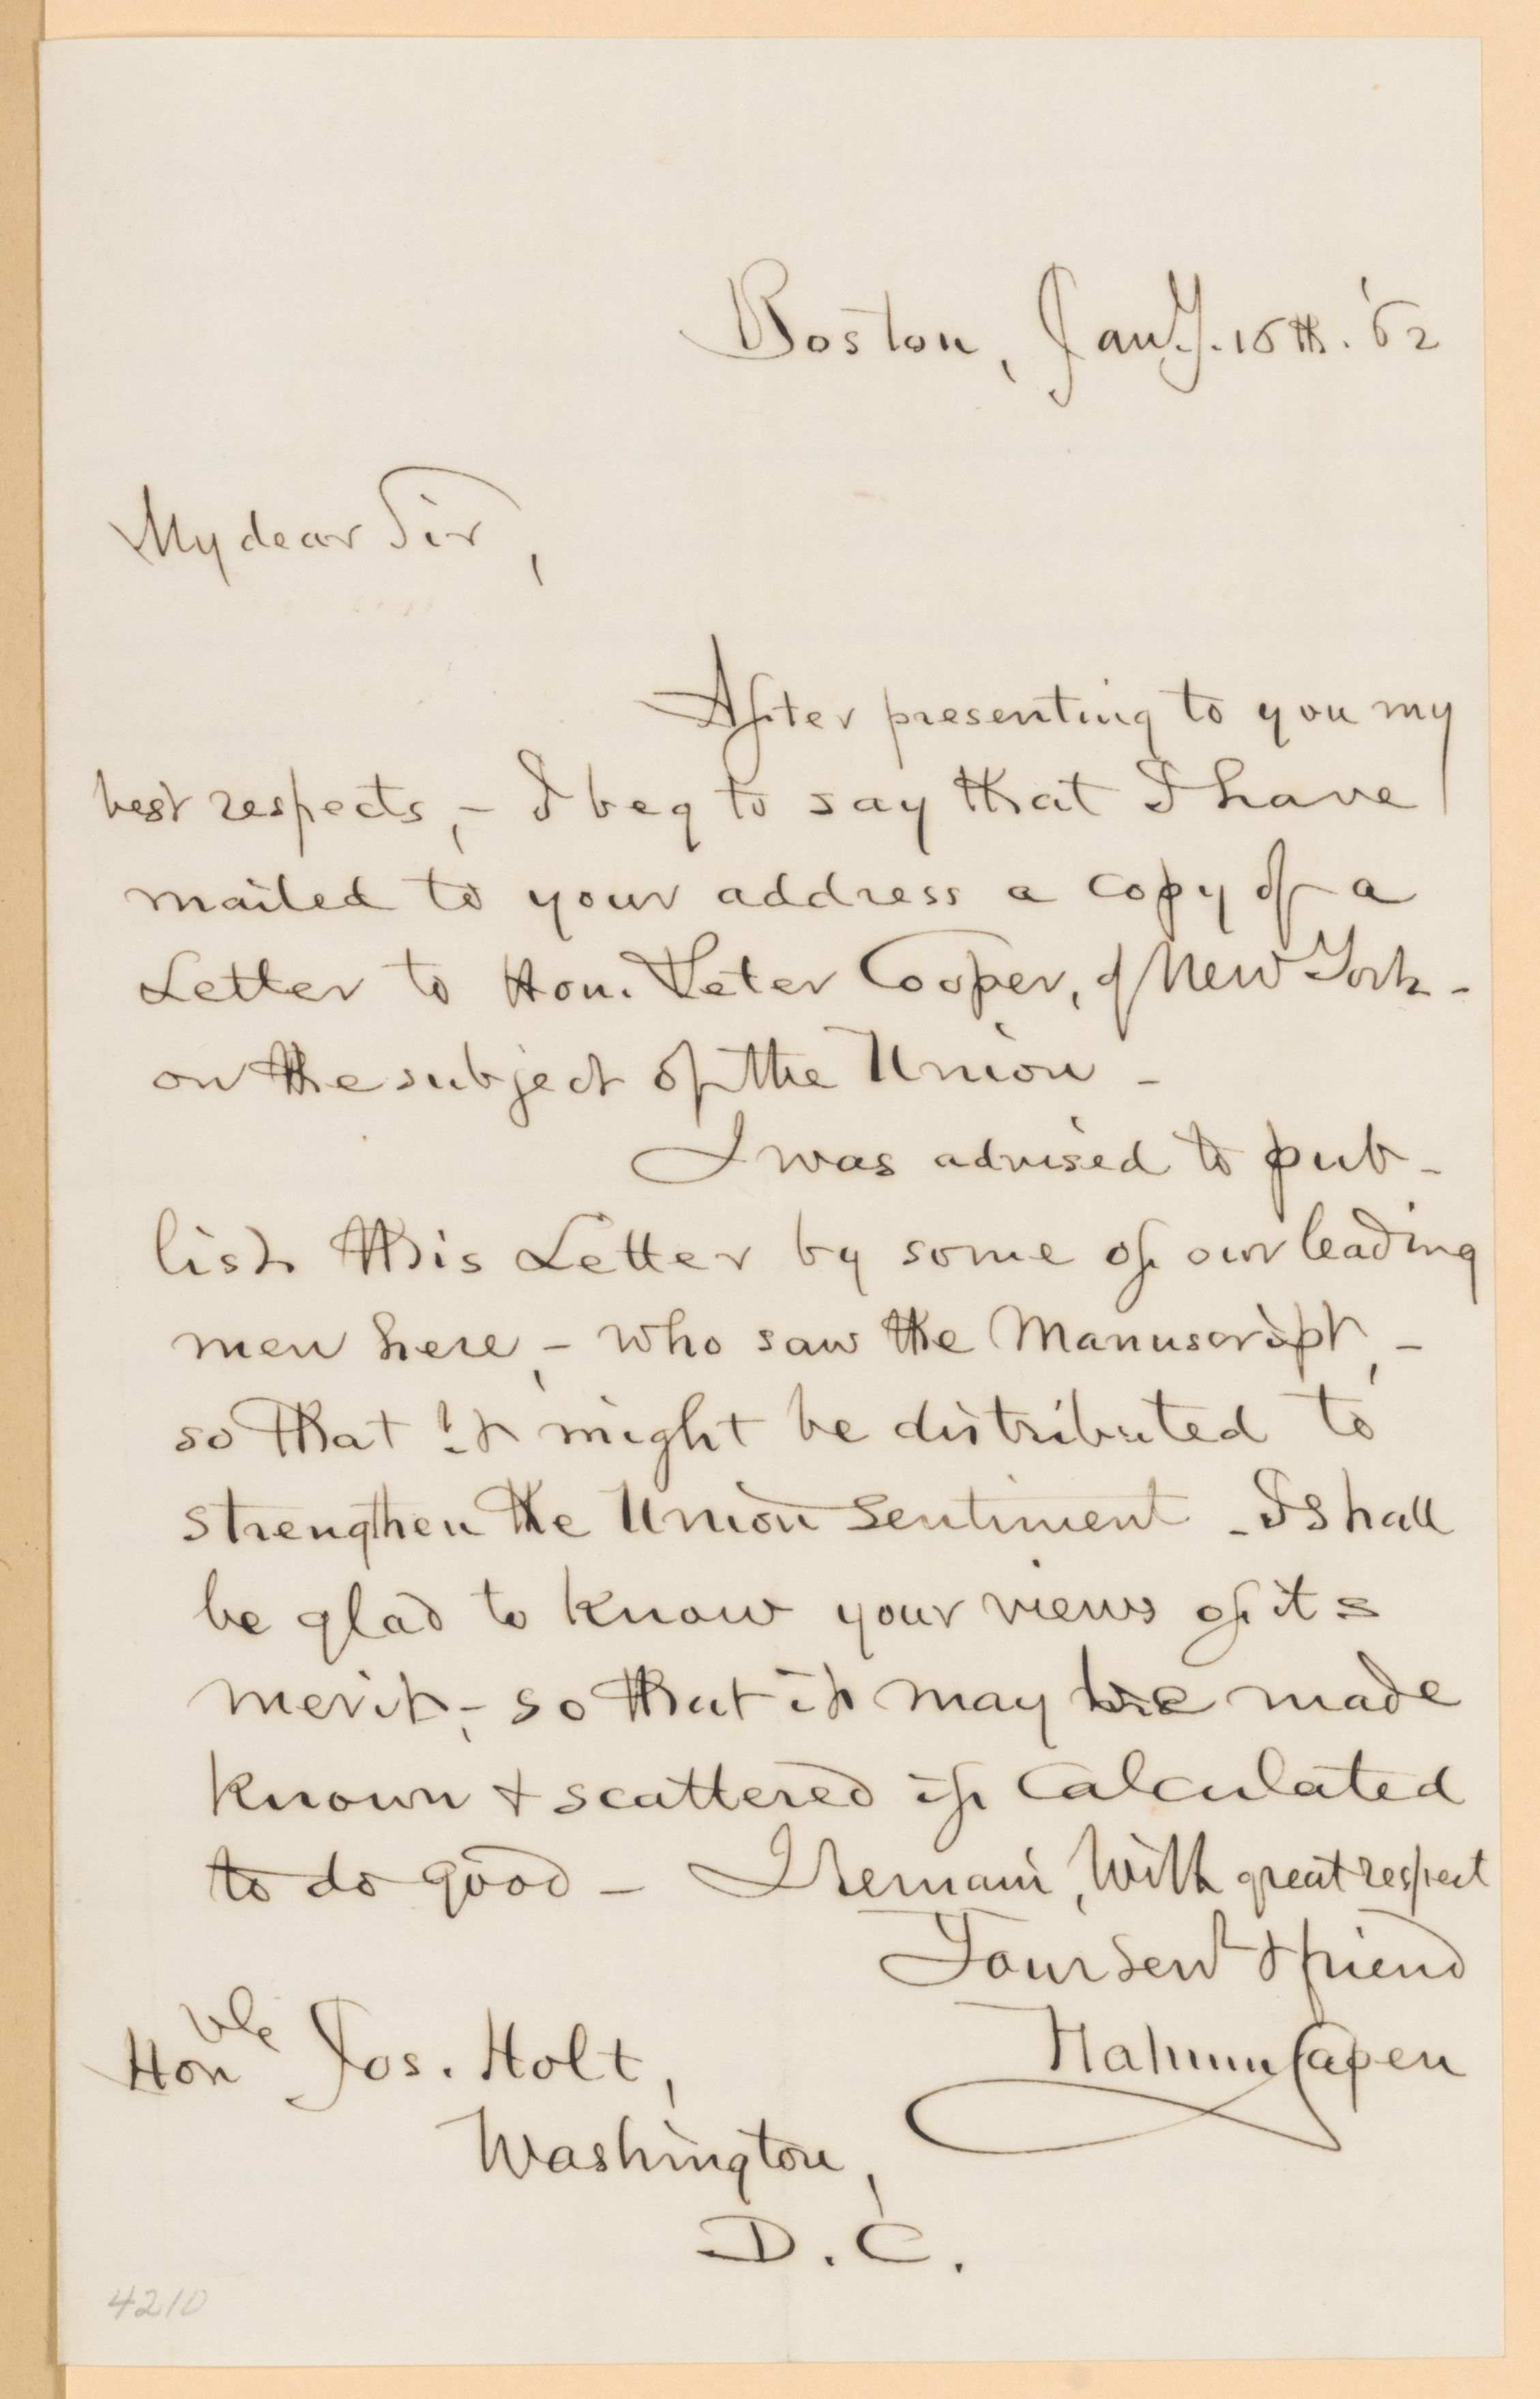 Boston, Jany. 16th. '62
My dear Sir,
After presenting to you my
best respects, - I beg to say that I have
mailed to your address a copy of a
Letter to Hon. Peter Cooper, of New York -
on the subject of the Union -
I was advised to pub-
lish this Letter by some of our leading
men here, - who saw the Manuscript, -
so that it might be distributed to
strengthen the Union sentiment - I shall
be glad to know your views of its
merit, - so that it may be made
known & scattered if calculated
to do good - I remain, with great respect
Your Servt & friend
Nahum Capen
Honble Jos. Holt,
Washington,
D. C.
4210